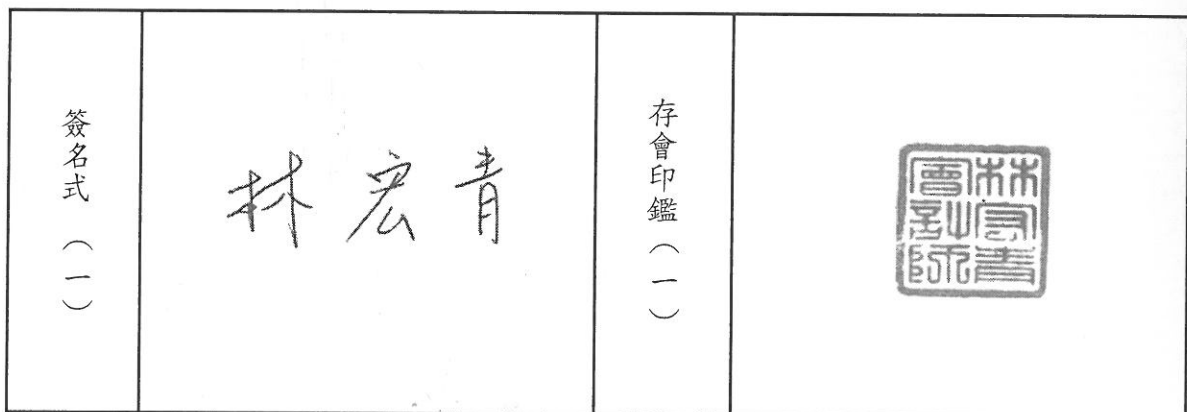 簽名式（一）
林宏青
存會印鑑（一）
林宏青
會計師